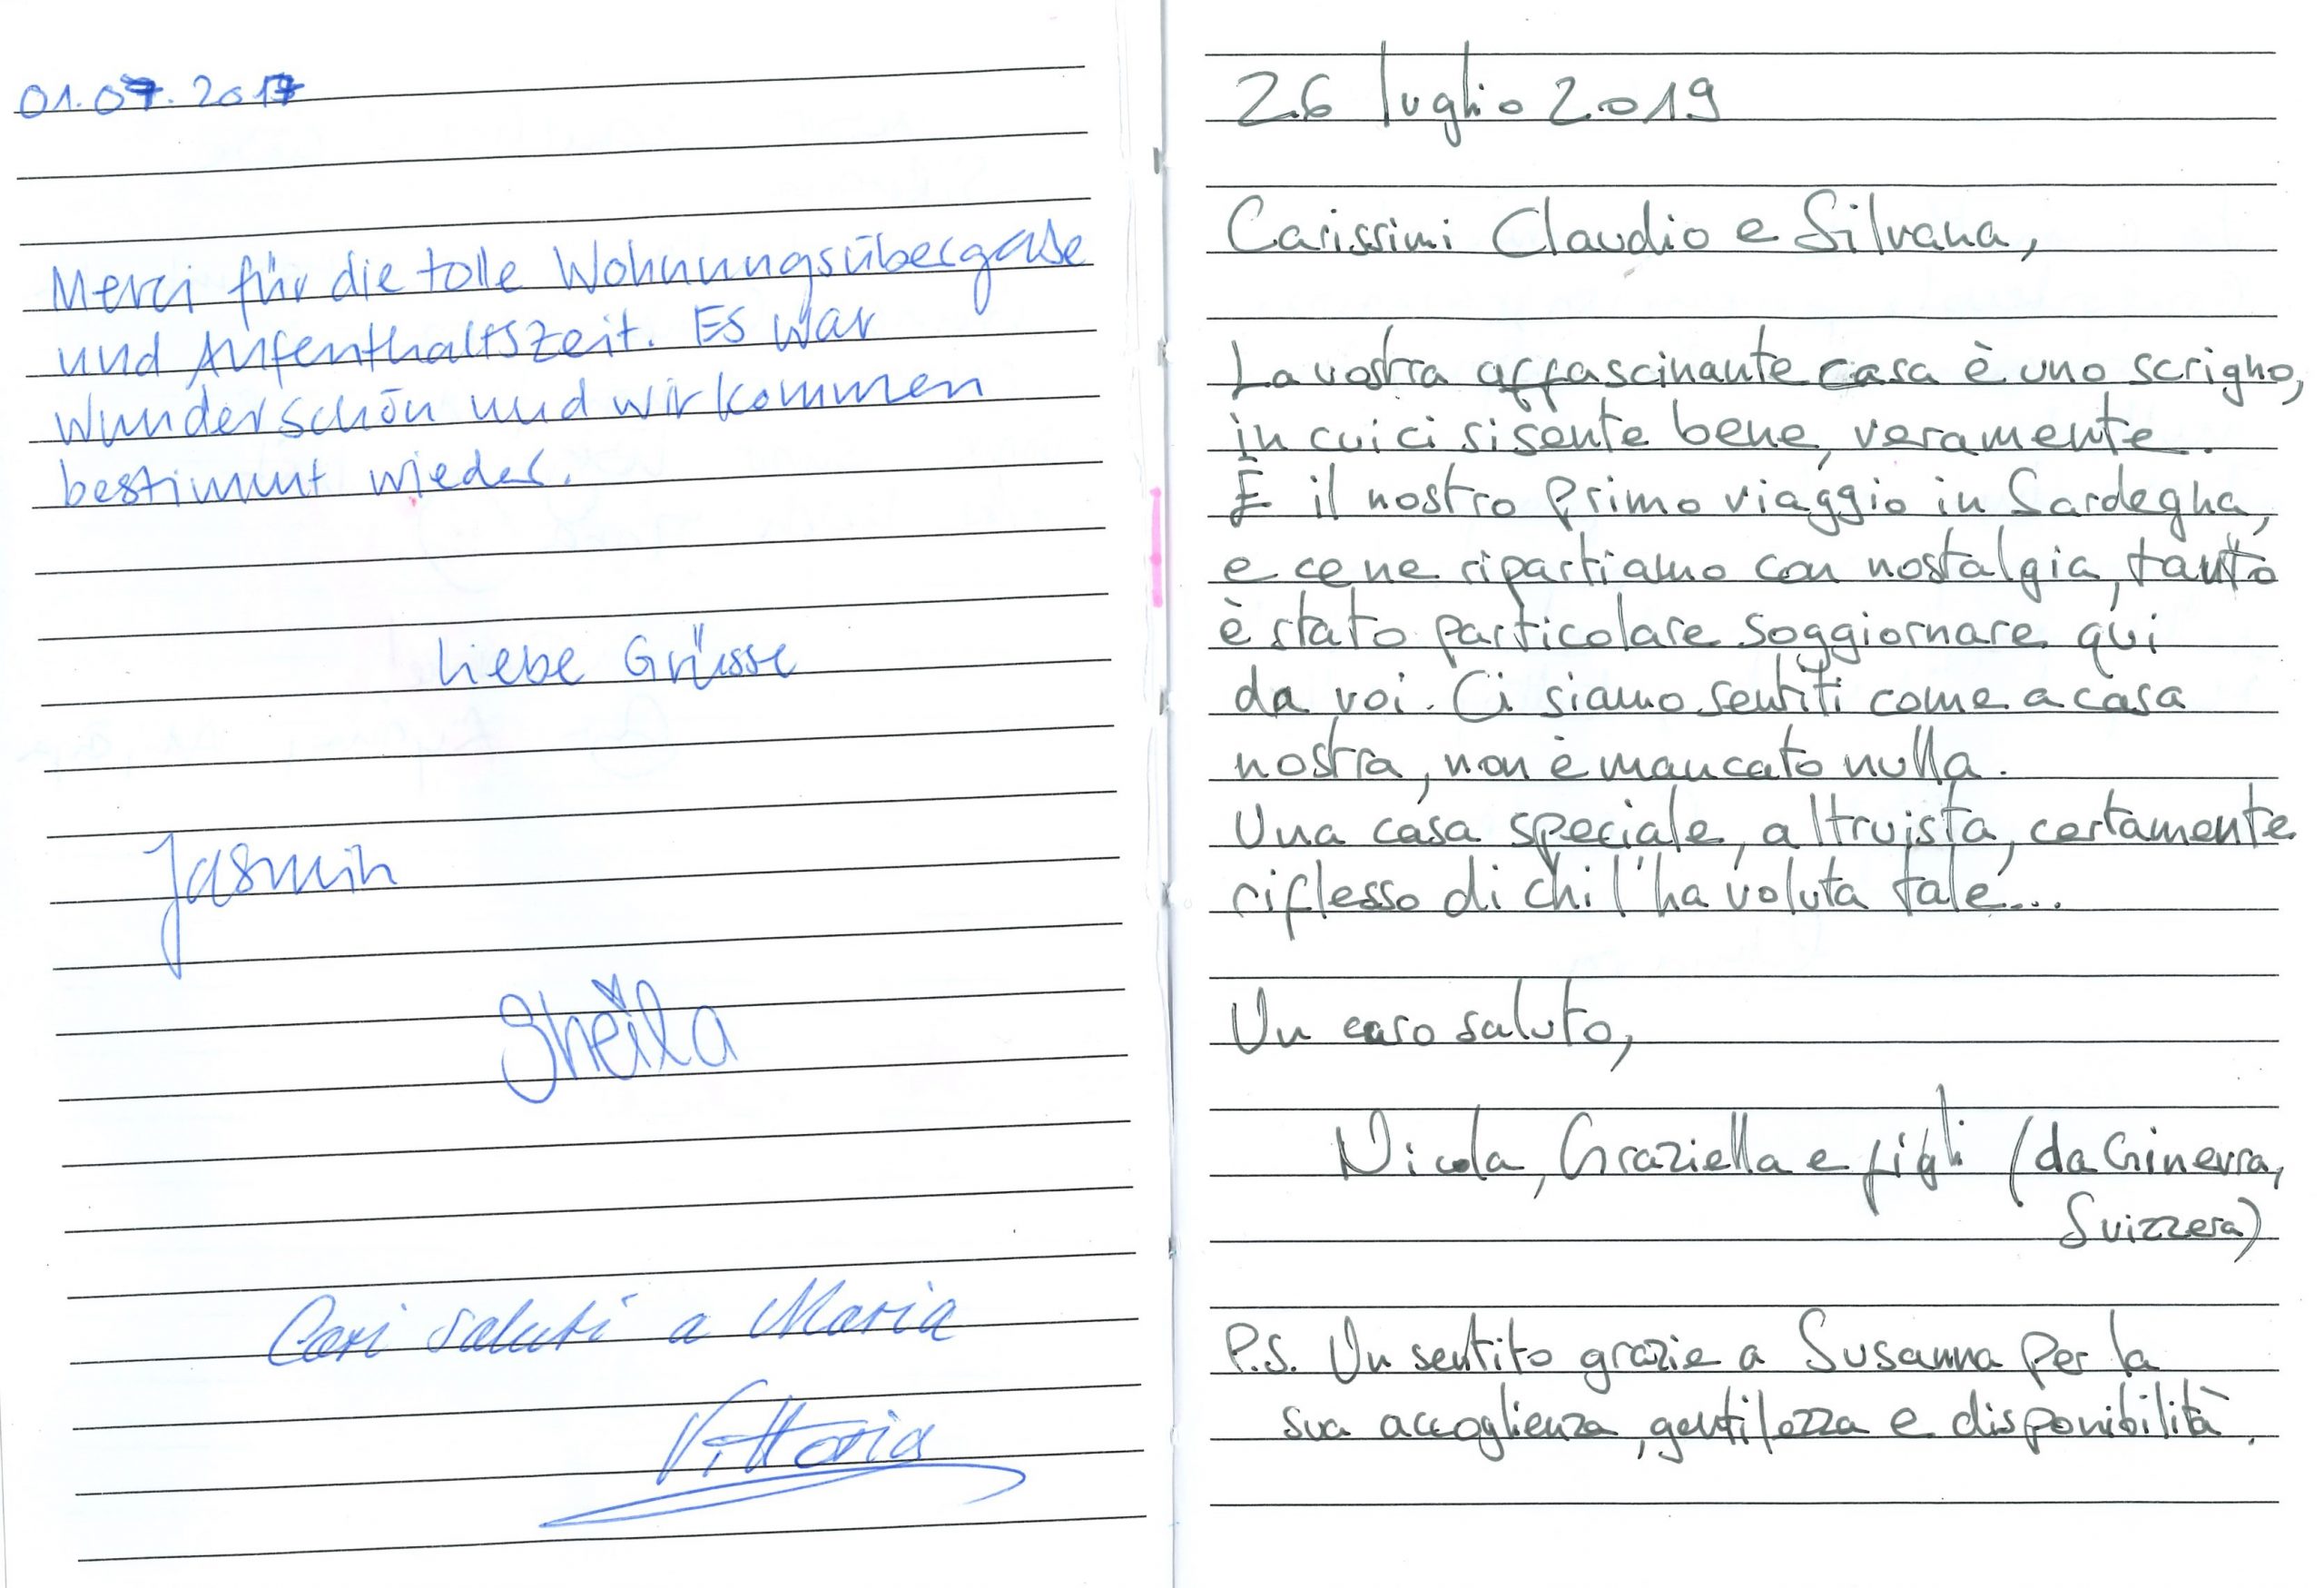 01.07.2017
Merci für die tolle Wohnungsübergabe
und Aufenthaltszeit. Es war
wunderschön und wir kommen
bestimmt wieder.
Liebe Grüsse
Jasmin
Sheila
Cari saluti a Maria
Vittoria
26 luglio 2019
Carissimi Claudio e Silvana,
La vostra affascinante casa è uno scrigno,
in cui ci si sente bene, veramente.
È il nostro primo viaggio in Sardegna,
e ce ne ripartiamo con nostalgia, tanto
è stato particolare soggiornare qui
da voi. Ci siamo sentiti come a casa
nostra, non è mancato nulla.
Una casa speciale, altruista, certamente
riflesso di chi l'ha voluta tale...
Un caro saluto,
Nicola, Graziella e figli (da Ginevra,
Svizzera)
P.S. Un sentito grazie a Susanna per la
sua accoglienza, gentilezza e disponibilità.